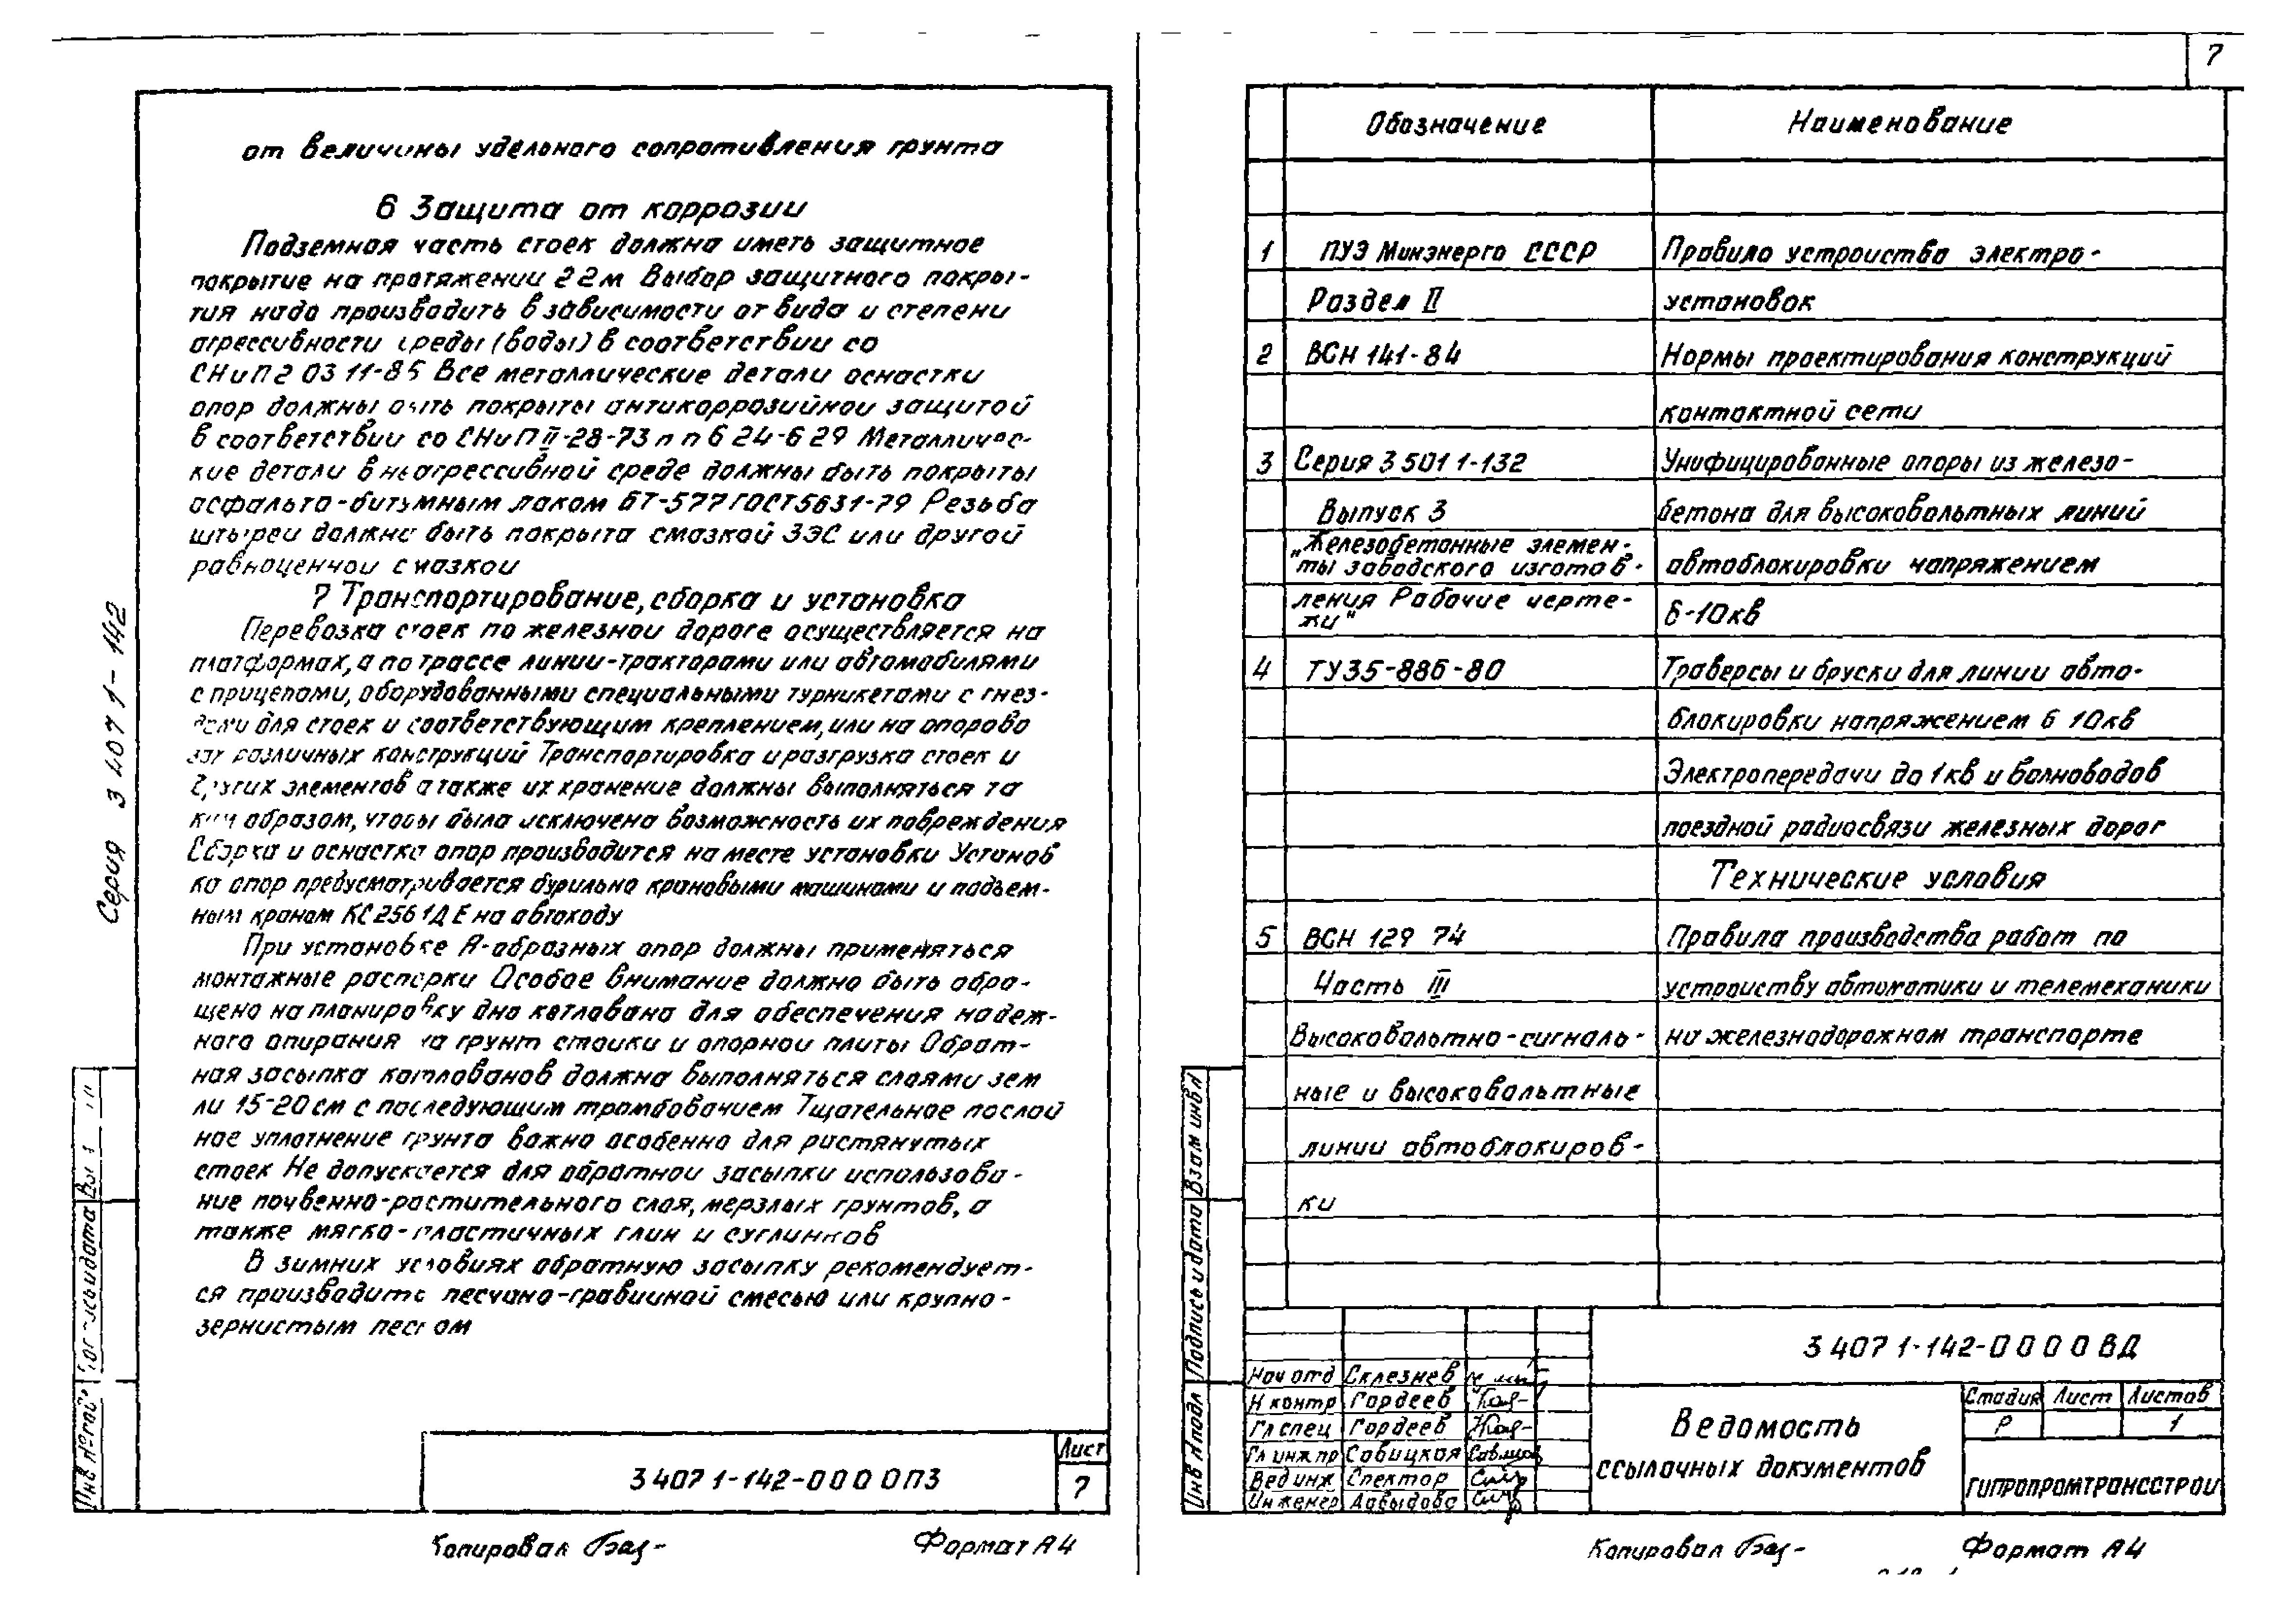 от величины удельного сопротивления грунта
6 Защита от коррозии
Подземная часть стоек должна иметь защитное
покрытие на протяжении 2 2м Выбор защитного покры-
тия надо производить в зависимости от вида и степени
агрессивности среды (воды) в соответствии со
СНиП 2 03 11-85 Все металлические детали оснастки
опор должны быть покрыты антикоррозийной защитой
в соответствии со СНиП II-28-73 п п 6 24-6 29 Металличес-
кие детали в неагрессивной среде должны быть покрыты
асфальто-битумным лаком БТ-577 ГОСТ 5631-79 Резьба
штырей должна быть покрыта смазкой ЗЭС или другой
равноценной смазкой
7 Транспортирование, сборка и установка
Перевозка стоек по железной дороге осуществляется на
платформах, а по трассе линии-тракторами или автомобилями
с прицепами, оборудованными специальными турникетами с гнез-
дами для стоек и соответствующим креплением, или на опорово
зах различных конструкций Транспортировка и разгрузка стоек и
других элементов а также их хранение должны выполняться та
ким образом, чтобы была исключена возможность их повреждения
Сборка и оснастка опор производится на месте установки Установ
ка опор предусматривается бурильно крановыми машинами и подъем-
ным краном КС 256 1Д Е на автоходу
При установке А-образных опор должны применяться
монтажные распорки Особое внимание должно быть обра-
щено на планировку дна котлована для обеспечения надеж-
ного опирания на грунт стойки и опорной плиты Обрат-
ная засыпка котлованов должна выполняться слоями зем
ли 15-20 см с последующим трамбованием Тщательное послой
ное уплотнение грунта важно особенно для растянутых
стоек Не допускается для обратной засыпки использова-
ние почвенно-растительного слоя, мерзлых грунтов, а
также мягко-пластичных глин и суглинков
В зимних условиях обратную засыпку рекомендует-
ся производить песчано-гравийной смесью или крупно-
зернистым песком
Серия 3 407 1-142
Инв № подл
Подпись и дата
3 407 1-142-0 0 0 0ПЗ
Лист
7
Копировал
Формат А4
7
Обозначение Наименование
1 ПУЭ Минэнерго СССР Правила устройства электро-
Раздел II установок
2 ВСН 141-84 Нормы проектирования конструкций
контактной сети
3 Серия 3 501 1-132 Унифицированные опоры из железо-
Выпуск 3 бетона для высоковольтных линий
„Железобетонные элемен- автоблокировки напряжением
ты заводского изготов-
ления Рабочие черте- 6-10кв
жи"
4 ТУ35-886-80 Траверсы и бруски для линии авто-
блокировки напряжением 6 10кв
Электропередачи до 1кв и волноводов
поездной радиосвязи железных дорог
Технические условия
5 ВСН 129 74 Правила производства работ по
Часть III устройству автоматики и телемеханики
Высоковольтно-сигналь- на железнодорожном транспорте
ные и высоковольтные
линии автоблокиров-
ки
Взам инв №
Подпись и дата
Инв № подл
3 407 1-142-0 0 0 0 ВД
Нач отд Склезнев
Н контр Гордеев
Гл спец Гордеев
Гл инж пр Савицкая
Вед инж Спектор
Инженер Давыдова
Ведомость
ссылочных документов
Стадия Лист Листов
Р 1
ГИПРОПРОМТРАНССТРОЙ
Копировал
Формат А4